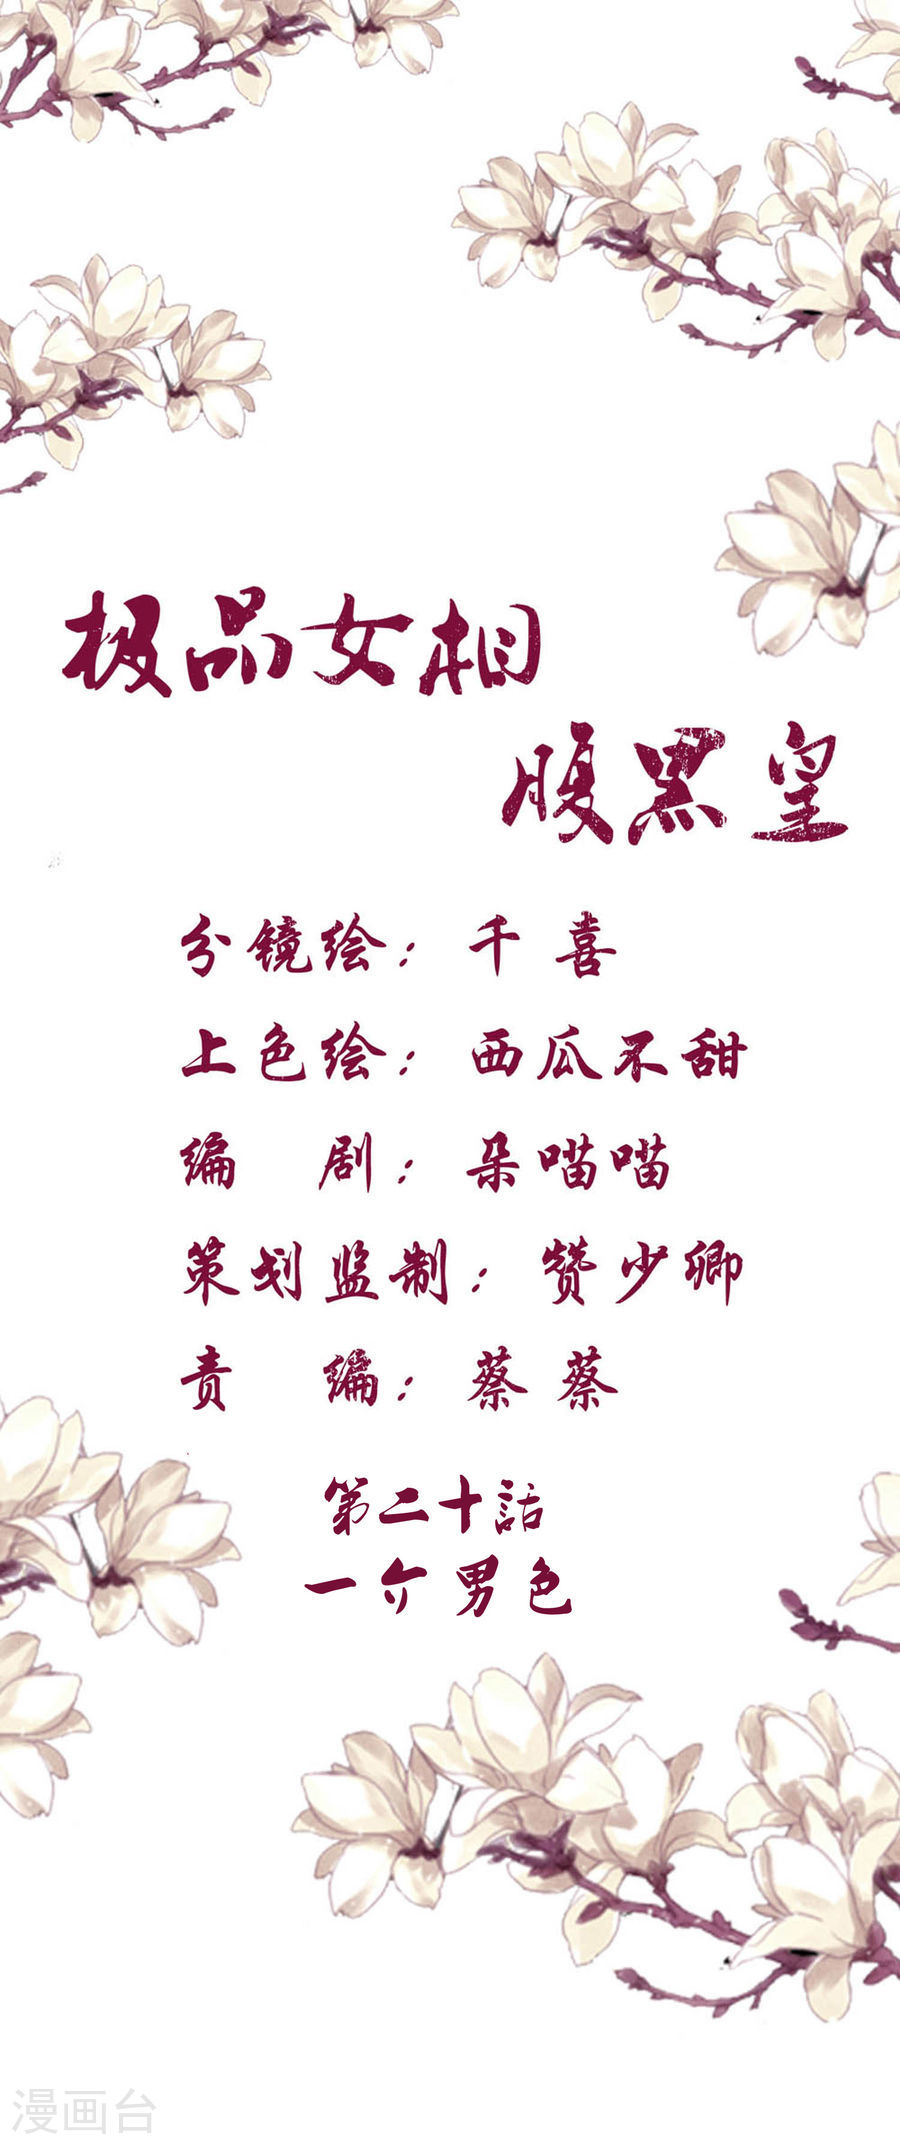 极品女相
腹黑皇
分镜绘：千喜
上色绘：西瓜不甜
编 剧：朵喵喵
策划监制：赞少卿
责 编：蔡蔡
第二十話
一介男色
漫画台